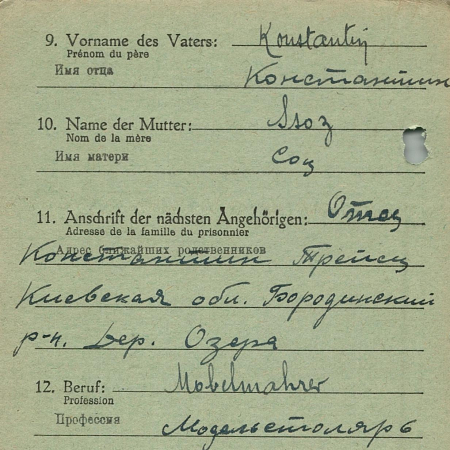 9. Vorname des Vaters: Konstantin
Prénom du père
Имя отца Константин
10. Name der Mutter: Ssoz
Nom de la mère
Имя матери Соц
11. Anschrift der nächsten Angehörigen: Отец
Adresse de la famille du prisonnier
Адрес ближайших родственников
Константин Трейец
Киевская обл. Бородинский
р-н. Дер. Озера
12. Beruf: Möbelmahrer
Profession
Профессия Модельстоляръ